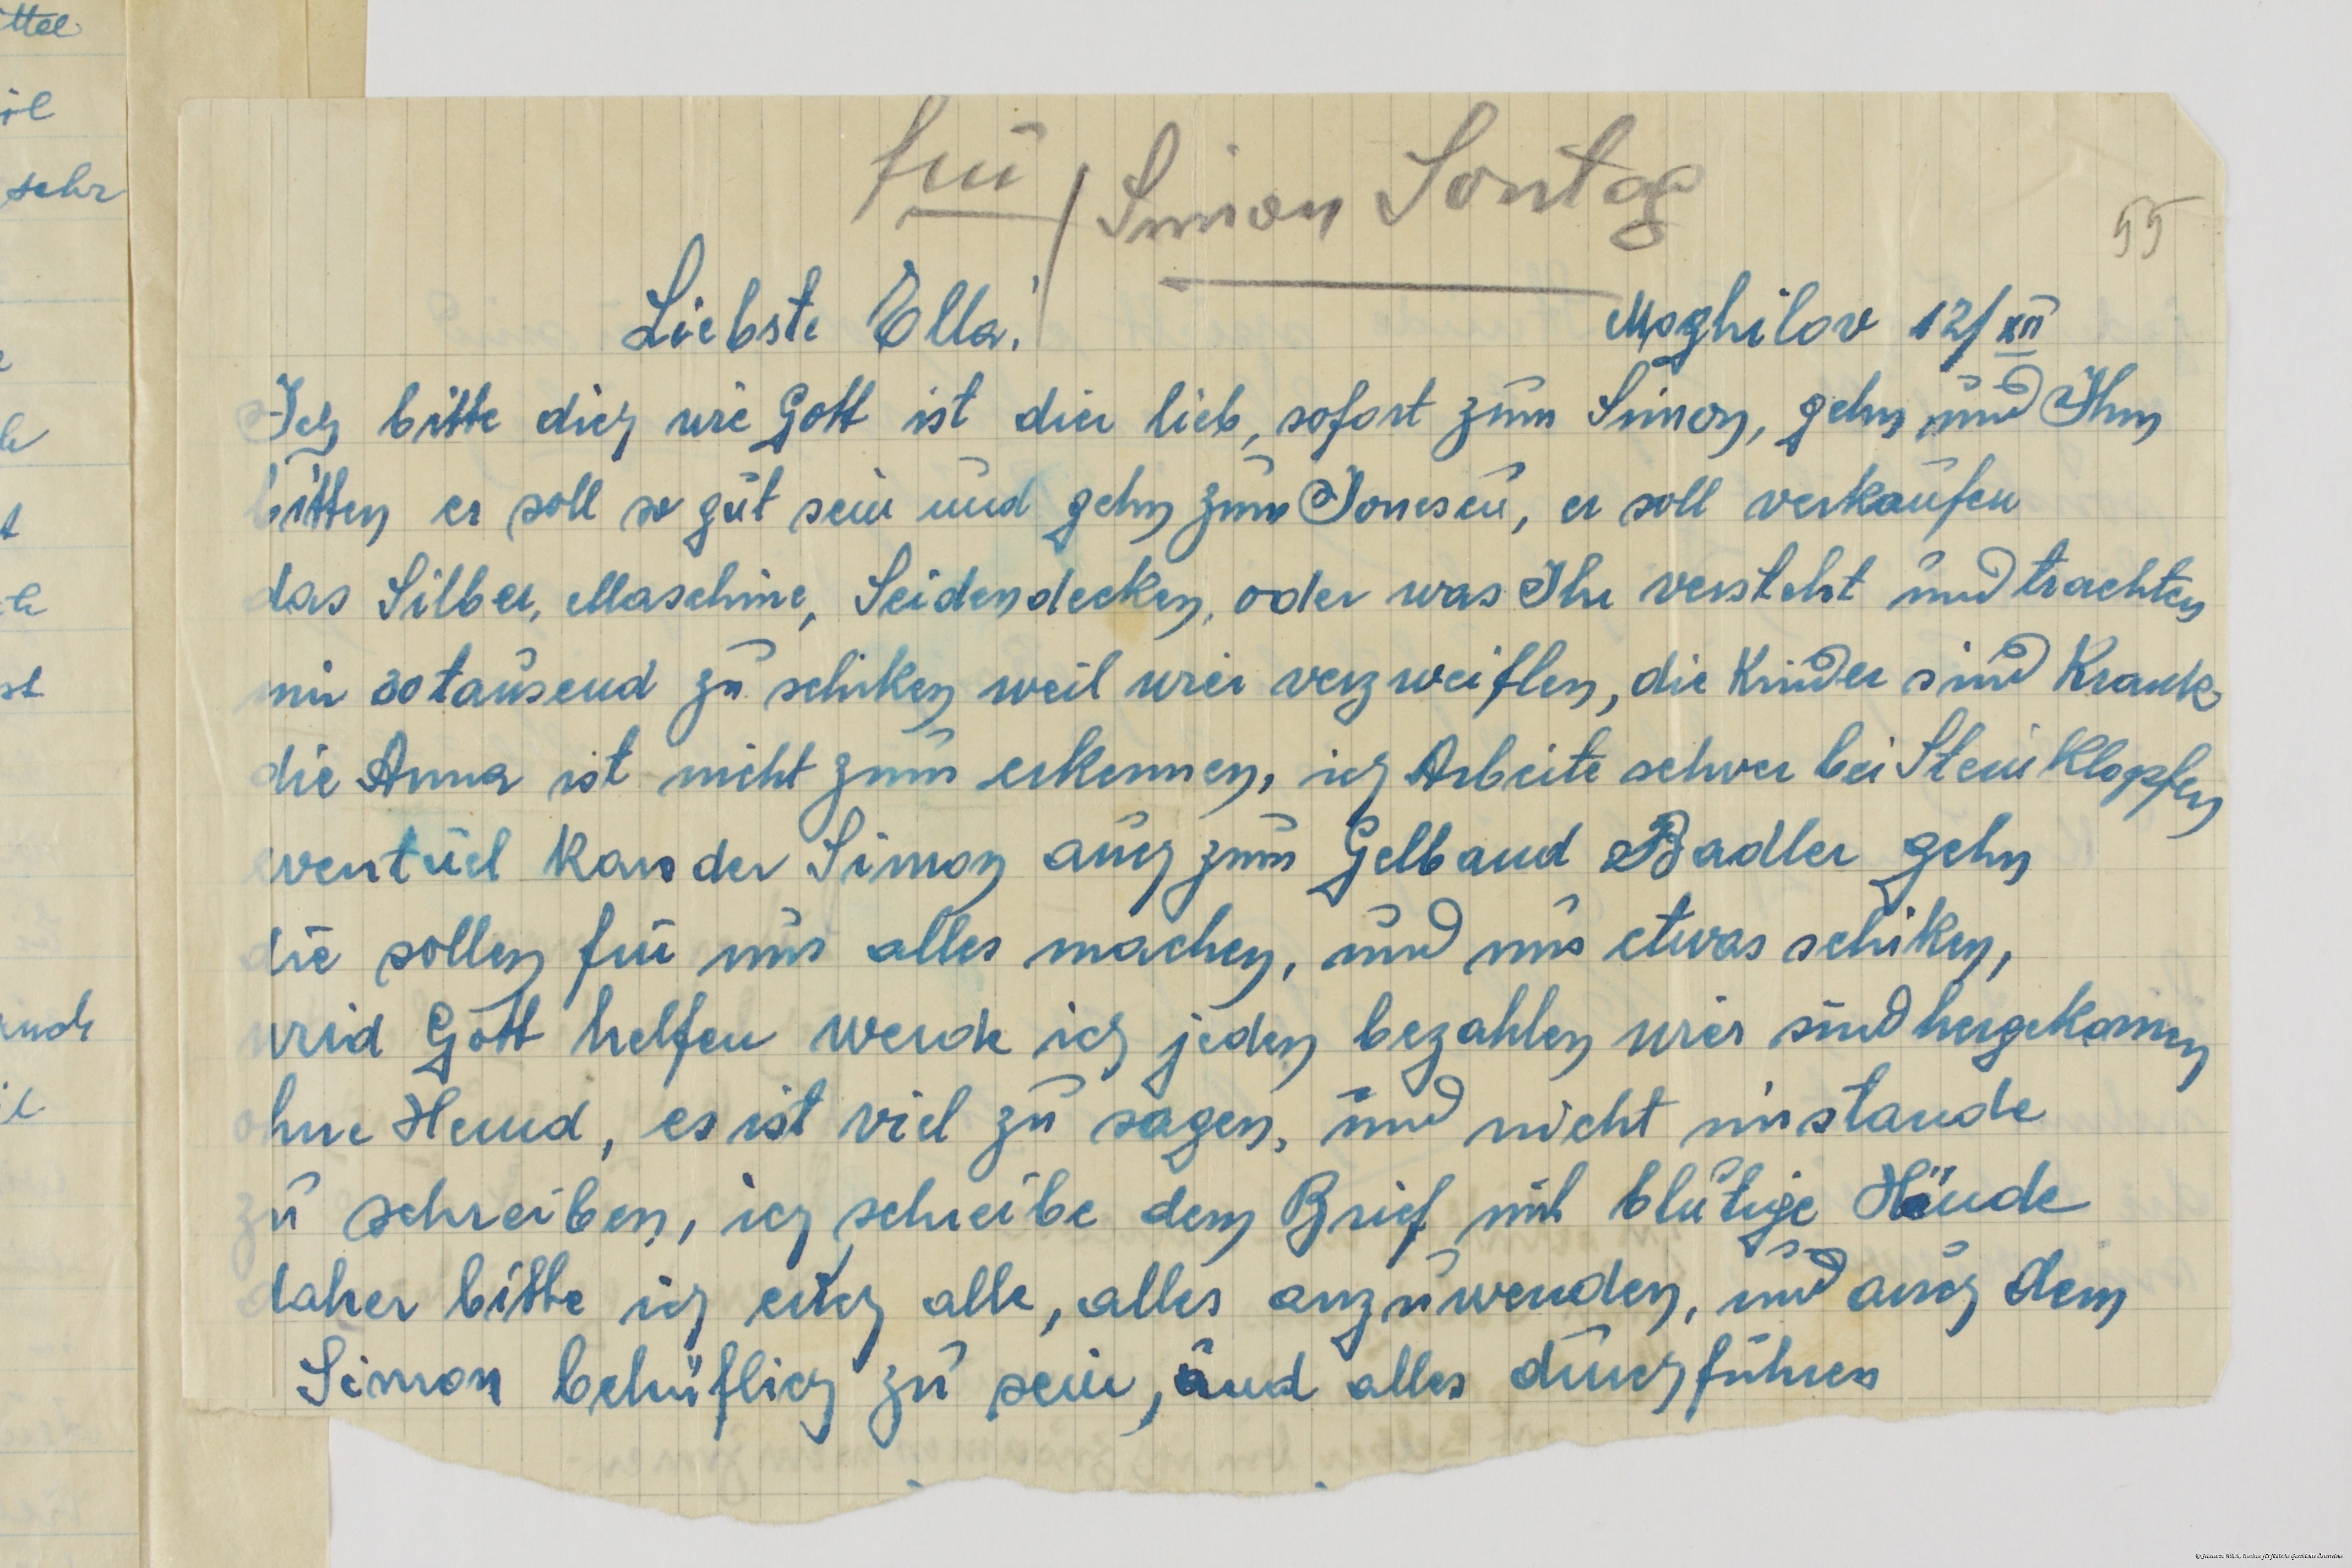 für / Simon Sontag
55
Liebste Ella! Moghilov 12/XII
Ich bitte dich wie Gott ist dier lieb, sofort zum Simon, gehn und Ihm
bitten er soll so gut sein und gehn zum Jonescu, er soll verkaufen
das Silber, Maschine, Seidendecken, oder was Ihr versteht und trachten
mir 30 tausend zu schiken weil wier verzweiflen, die Kinder sind Krank
die Anna ist nicht zum erkennen, ich Arbeite schwer bei Stein Klopfen
eventuel kan der Simon auch zum Gelband Badler gehn
die sollen für uns alles machen, und uns etwas schiken,
wird Gott helfen werde ich jeden bezahlen wier sind hergekomen
ohne Hemd, es ist viel zu sagen, und nicht imstande
zu schreiben, ich schreibe den Brief mit blutige Hände
daher bitte ich euch alle, alles anzuwenden, und auch dem
Simon behüflich zu sein, und alles durchführen
ttel
sehr
st